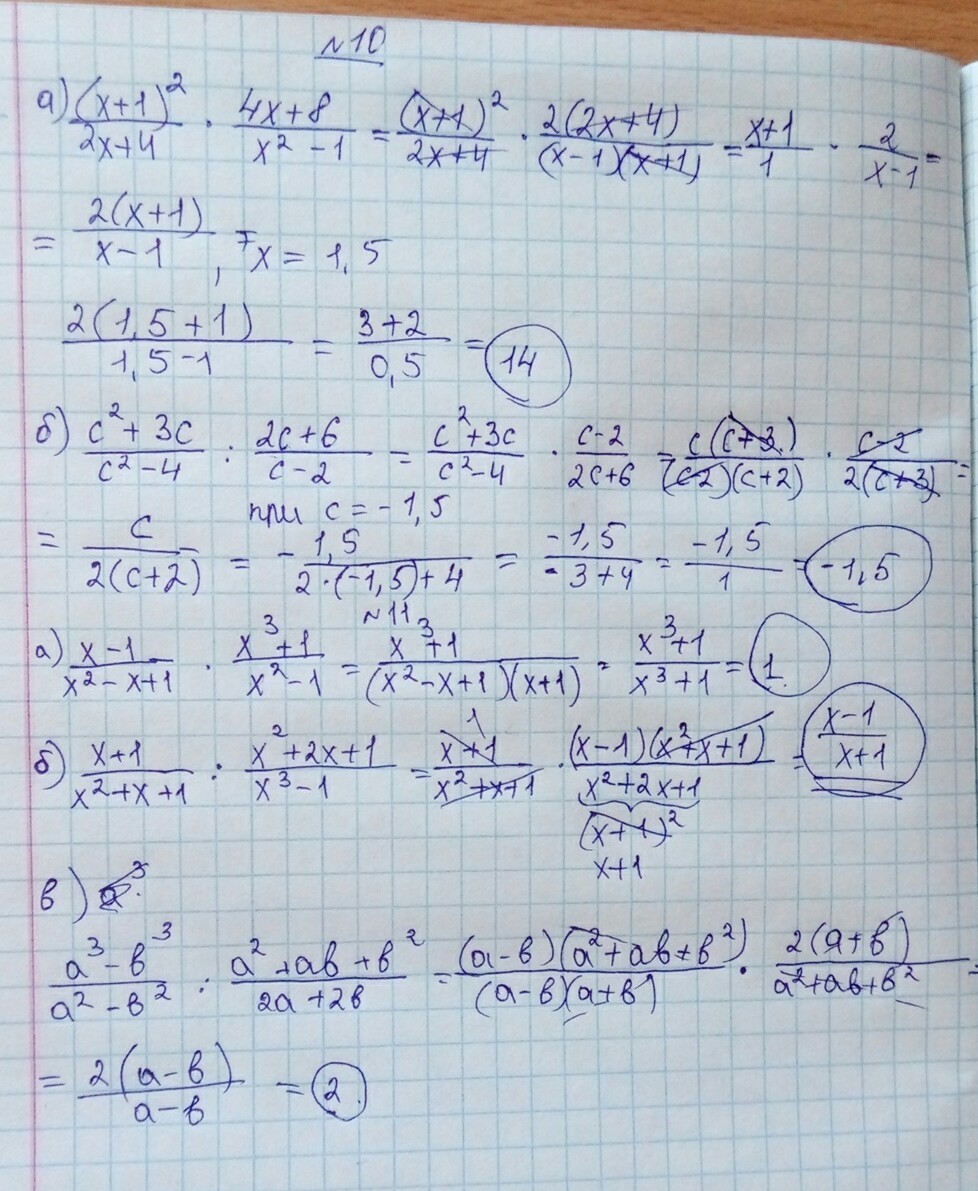 №10
а) (x+1)²/(2x+4) · (4x+8)/(x²-1) = (x+1)²/(2x+4) · 2(2x+4)/((x-1)(x+1)) = (x+1)/1 · 2/(x-1) =
= 2(x+1)/(x-1), x = 1,5
2(1,5+1)/(1,5-1) = (3+2)/0,5 = 14
б) (c²+3c)/(c²-4) : (2c+6)/(c-2) = (c²+3c)/(c²-4) · (c-2)/(2c+6) = c(c+3)/((c-2)(c+2)) · (c-2)/(2(c+3)) =
при c = -1,5
= c/(2(c+2)) = -1,5/(2·(-1,5)+4) = -1,5/(-3+4) = -1,5/1 = -1,5
№11
а) (x-1)/(x²-x+1) · (x³+1)/(x²-1) = (x³+1)/((x²-x+1)(x+1)) = (x³+1)/(x³+1) = 1
б) (x+1)/(x²+x+1) : (x²+2x+1)/(x³-1) = (x+1)/(x²+x+1) · (x-1)(x²+x+1)/(x²+2x+1) = (x-1)/(x+1)
1
(x+1)²
x+1
в)
(a³-в³)/(a²-в²) : (a²+aв+в²)/(2a+2в) = (a-в)(a²+aв+в²)/((a-в)(a+в)) · 2(a+в)/(a²+aв+в²) =
= 2(a-в)/(a-в) = 2